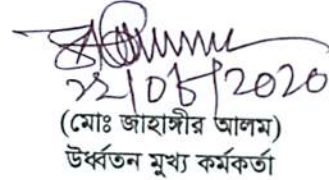 ২২/০৬/2020
(মোঃ জাহাঙ্গীর আলম)
উর্ধ্বতন মুখ্য কর্মকর্তা